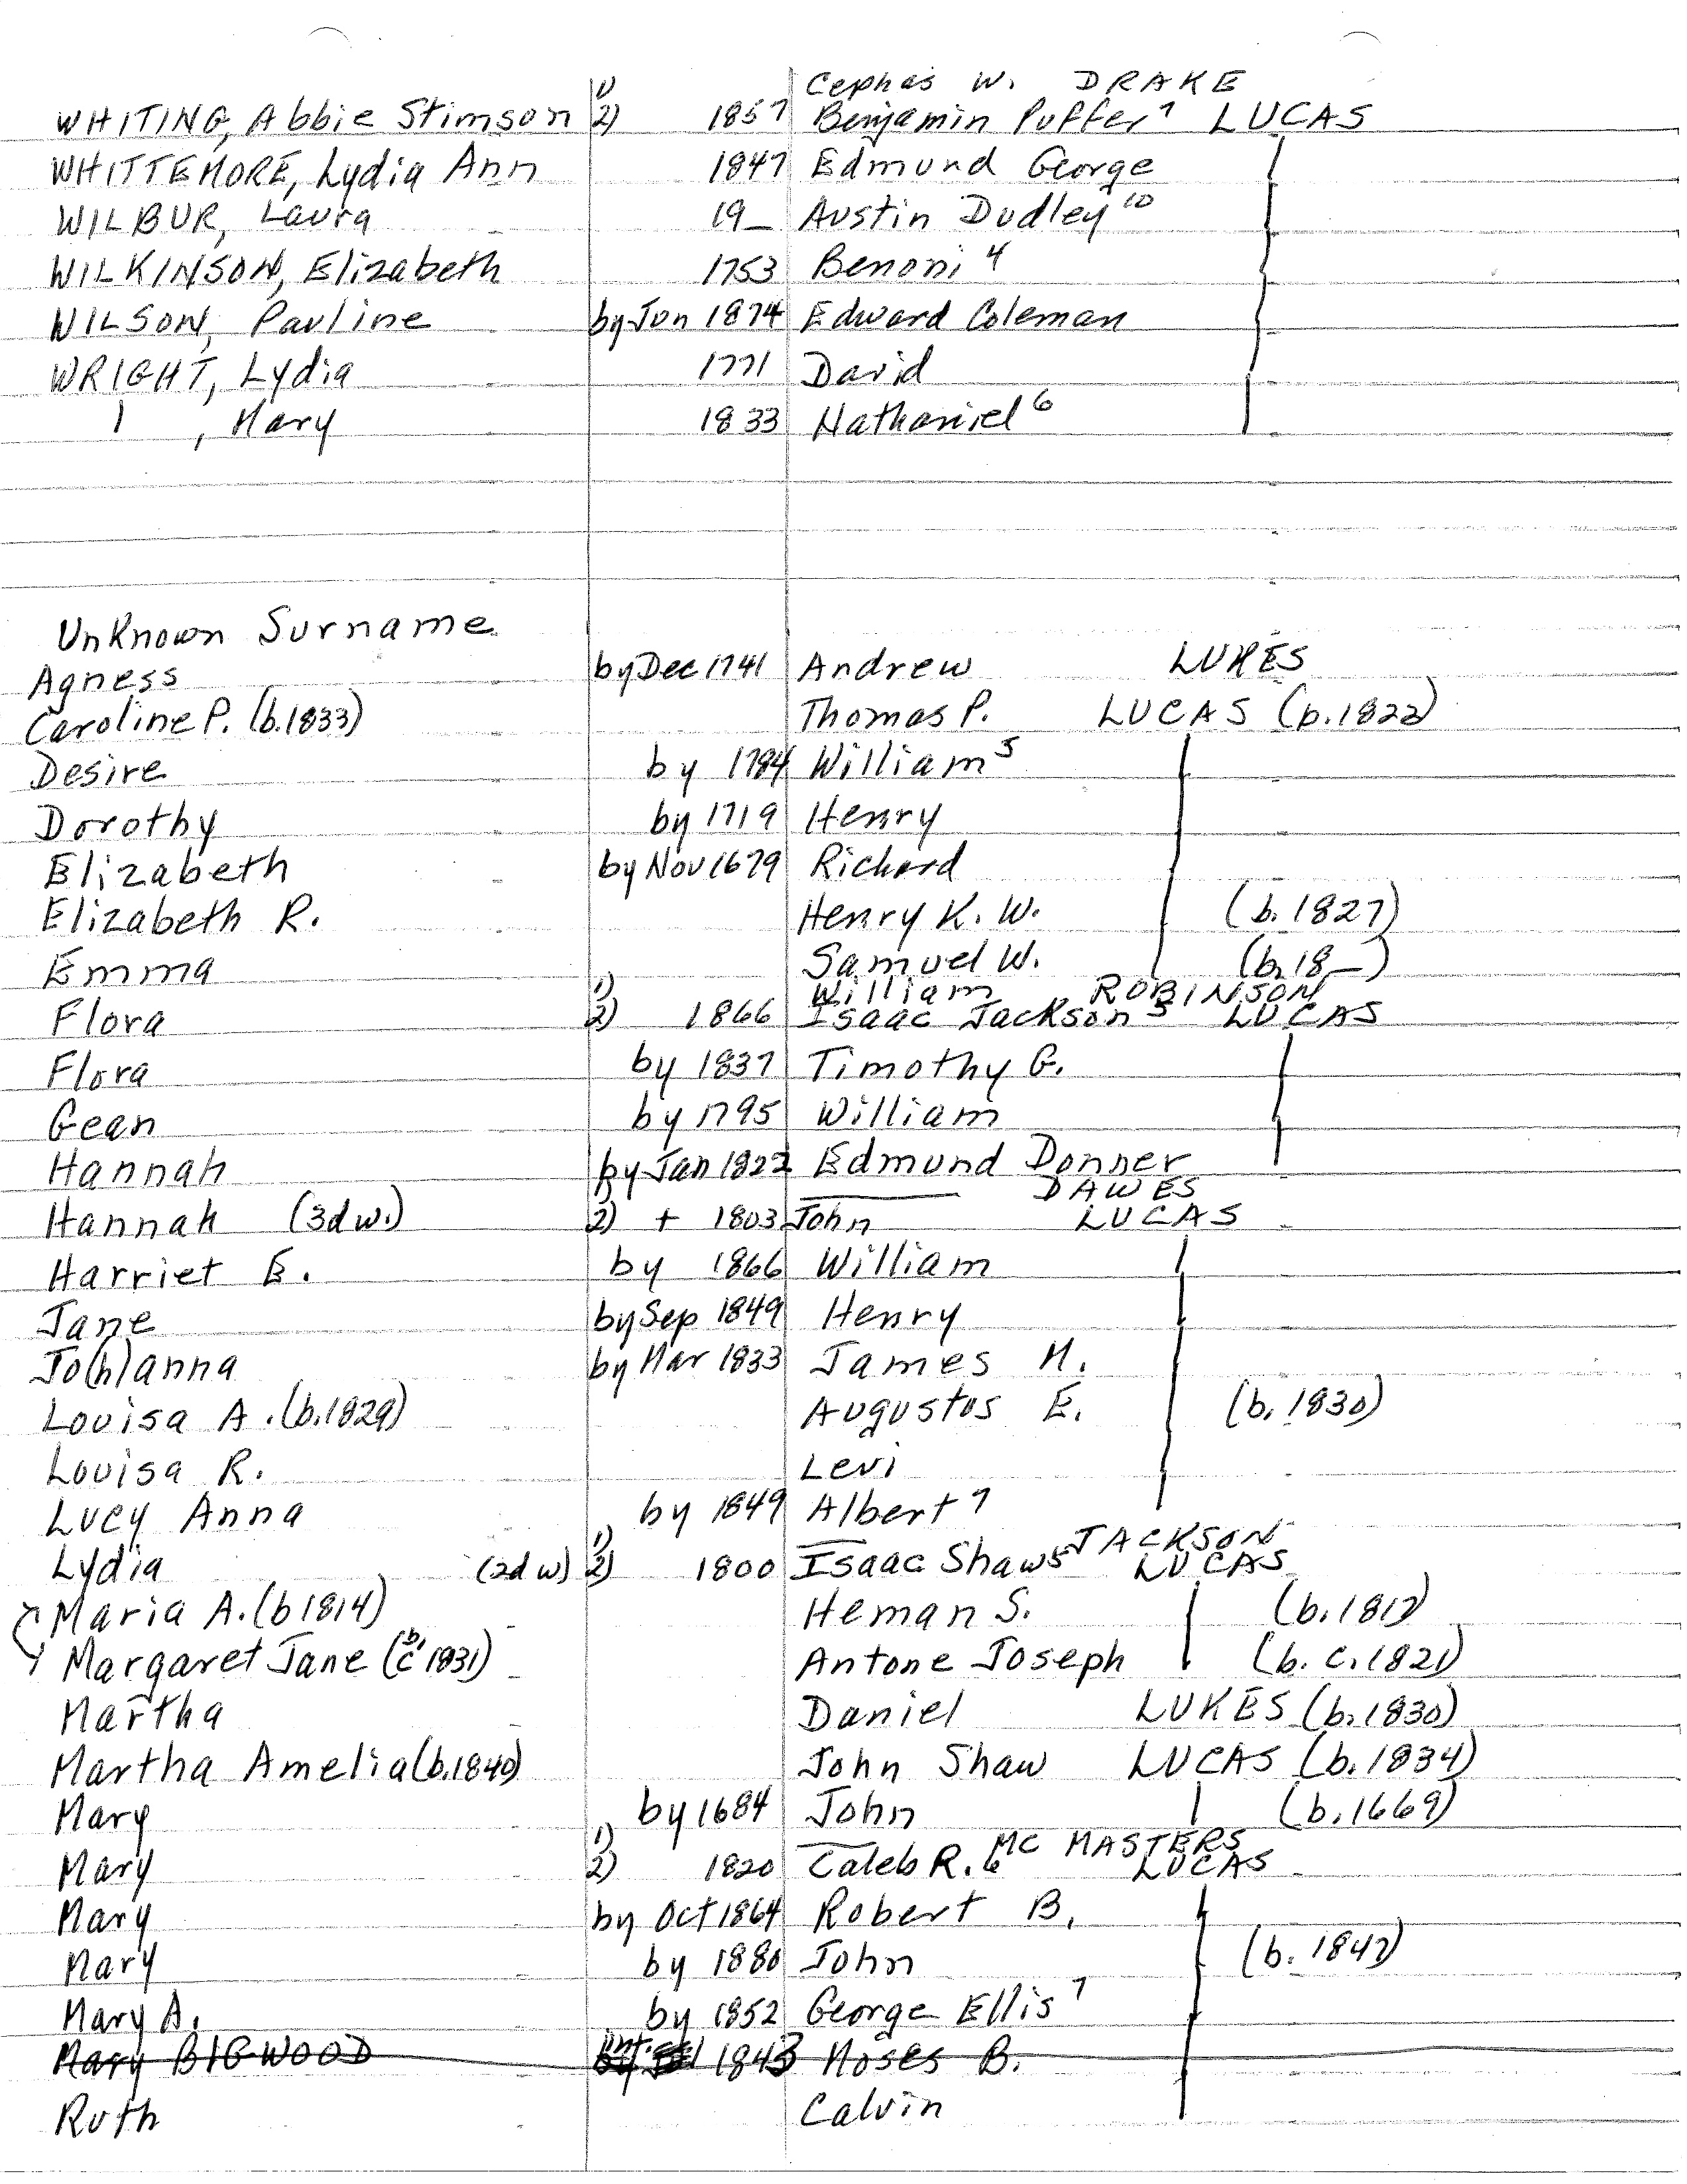 1) Cephas W. DRAKE
WHITING, Abbie Stimson 2) 1857 Benjamin Puffer 7 LUCAS
WHITTEMORE, Lydia Ann 1847 Edmund George |
WILBUR, Laura 19_ Austin Dudley 10 |
WILKINSON, Elizabeth 1753 Benoni 4 |
WILSON, Pauline by Jun 1874 Edward Coleman |
WRIGHT, Lydia 1771 David |
| , Mary 1833 Nathaniel 6 |
Unknown Surname
Agness by Dec 1741 Andrew LUKES
Caroline P. (b.1833) Thomas P. LUCAS (b.1822)
Desire by 1784 William 5 |
Dorothy by 1719 Henry |
Elizabeth by Nov 1679 Richard |
Elizabeth R. Henry K. W. | (b. 1827)
Emma Samuel W. | (b. 18_)
1) William ROBINSON
Flora 2) 1866 Isaac Jackson 5 LUCAS
Flora by 1837 Timothy G. |
Gean by 1795 William |
Hannah by Jan 1822 Edmund Donner |
1) ___ DAWES
Hannah (3d w.) 2) + 1803 John LUCAS
Harriet E. by 1866 William |
Jane by Sep 1849 Henry |
Jo(h)anna by Mar 1833 James M. |
Louisa A. (b.1829) Augustos E. | (b. 1830)
Louisa R. Levi |
Lucy Anna by 1849 Albert 7 |
1) __ JACKSON
Lydia (2d w) 2) 1800 Isaac Shaw 5 LUCAS
Maria A. (b 1814) Heman S. | (b. 1817)
Margaret Jane (b. c 1831) Antone Joseph | (b. c. 1821)
Martha Daniel LUKES (b. 1830)
Martha Amelia (b.1840) John Shaw LUCAS (b. 1834)
Mary by 1684 John | (b. 1669)
1) __ MC MASTERS
Mary 2) 1820 Caleb R. 6 LUCAS
Mary by Oct 1864 Robert B. |
Mary by 1880 John | (b. 1847)
Mary A. by 1852 George Ellis 7 |
Mary BIGWOOD int. 1843 Moses B. |
Ruth Calvin |